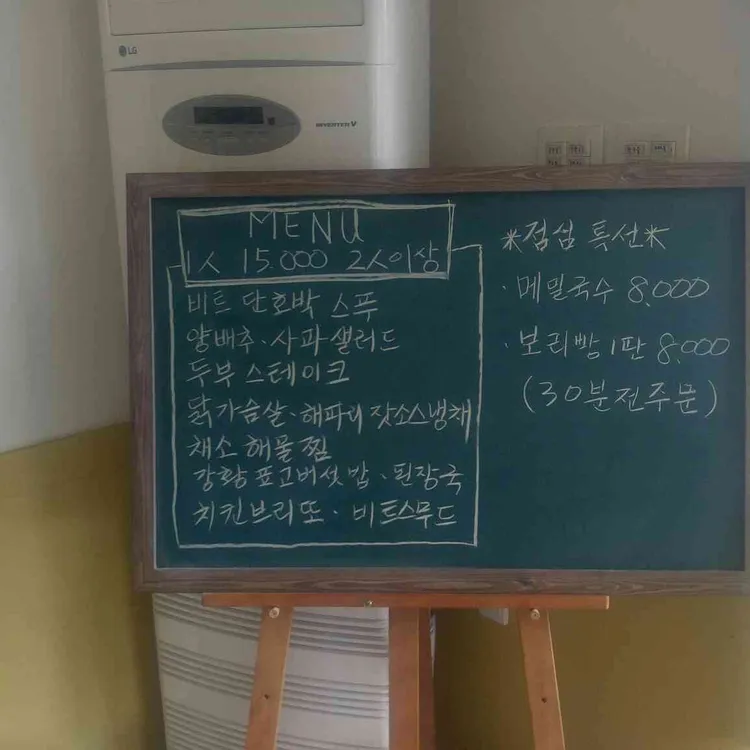 LG
INVERTER V
MENU
1人 15.000 2人이상
비트 단호박 스푸
양배추·사과샐러드
두부스테이크
닭가슴살·해파리 잣소스냉채
채소 해물찜
강황 표고버섯밥·된장국
치킨브리또·비트스무드
*점심 특선*
·메밀국수 8,000
·보리빵 1판 8,000
(30분전주문)